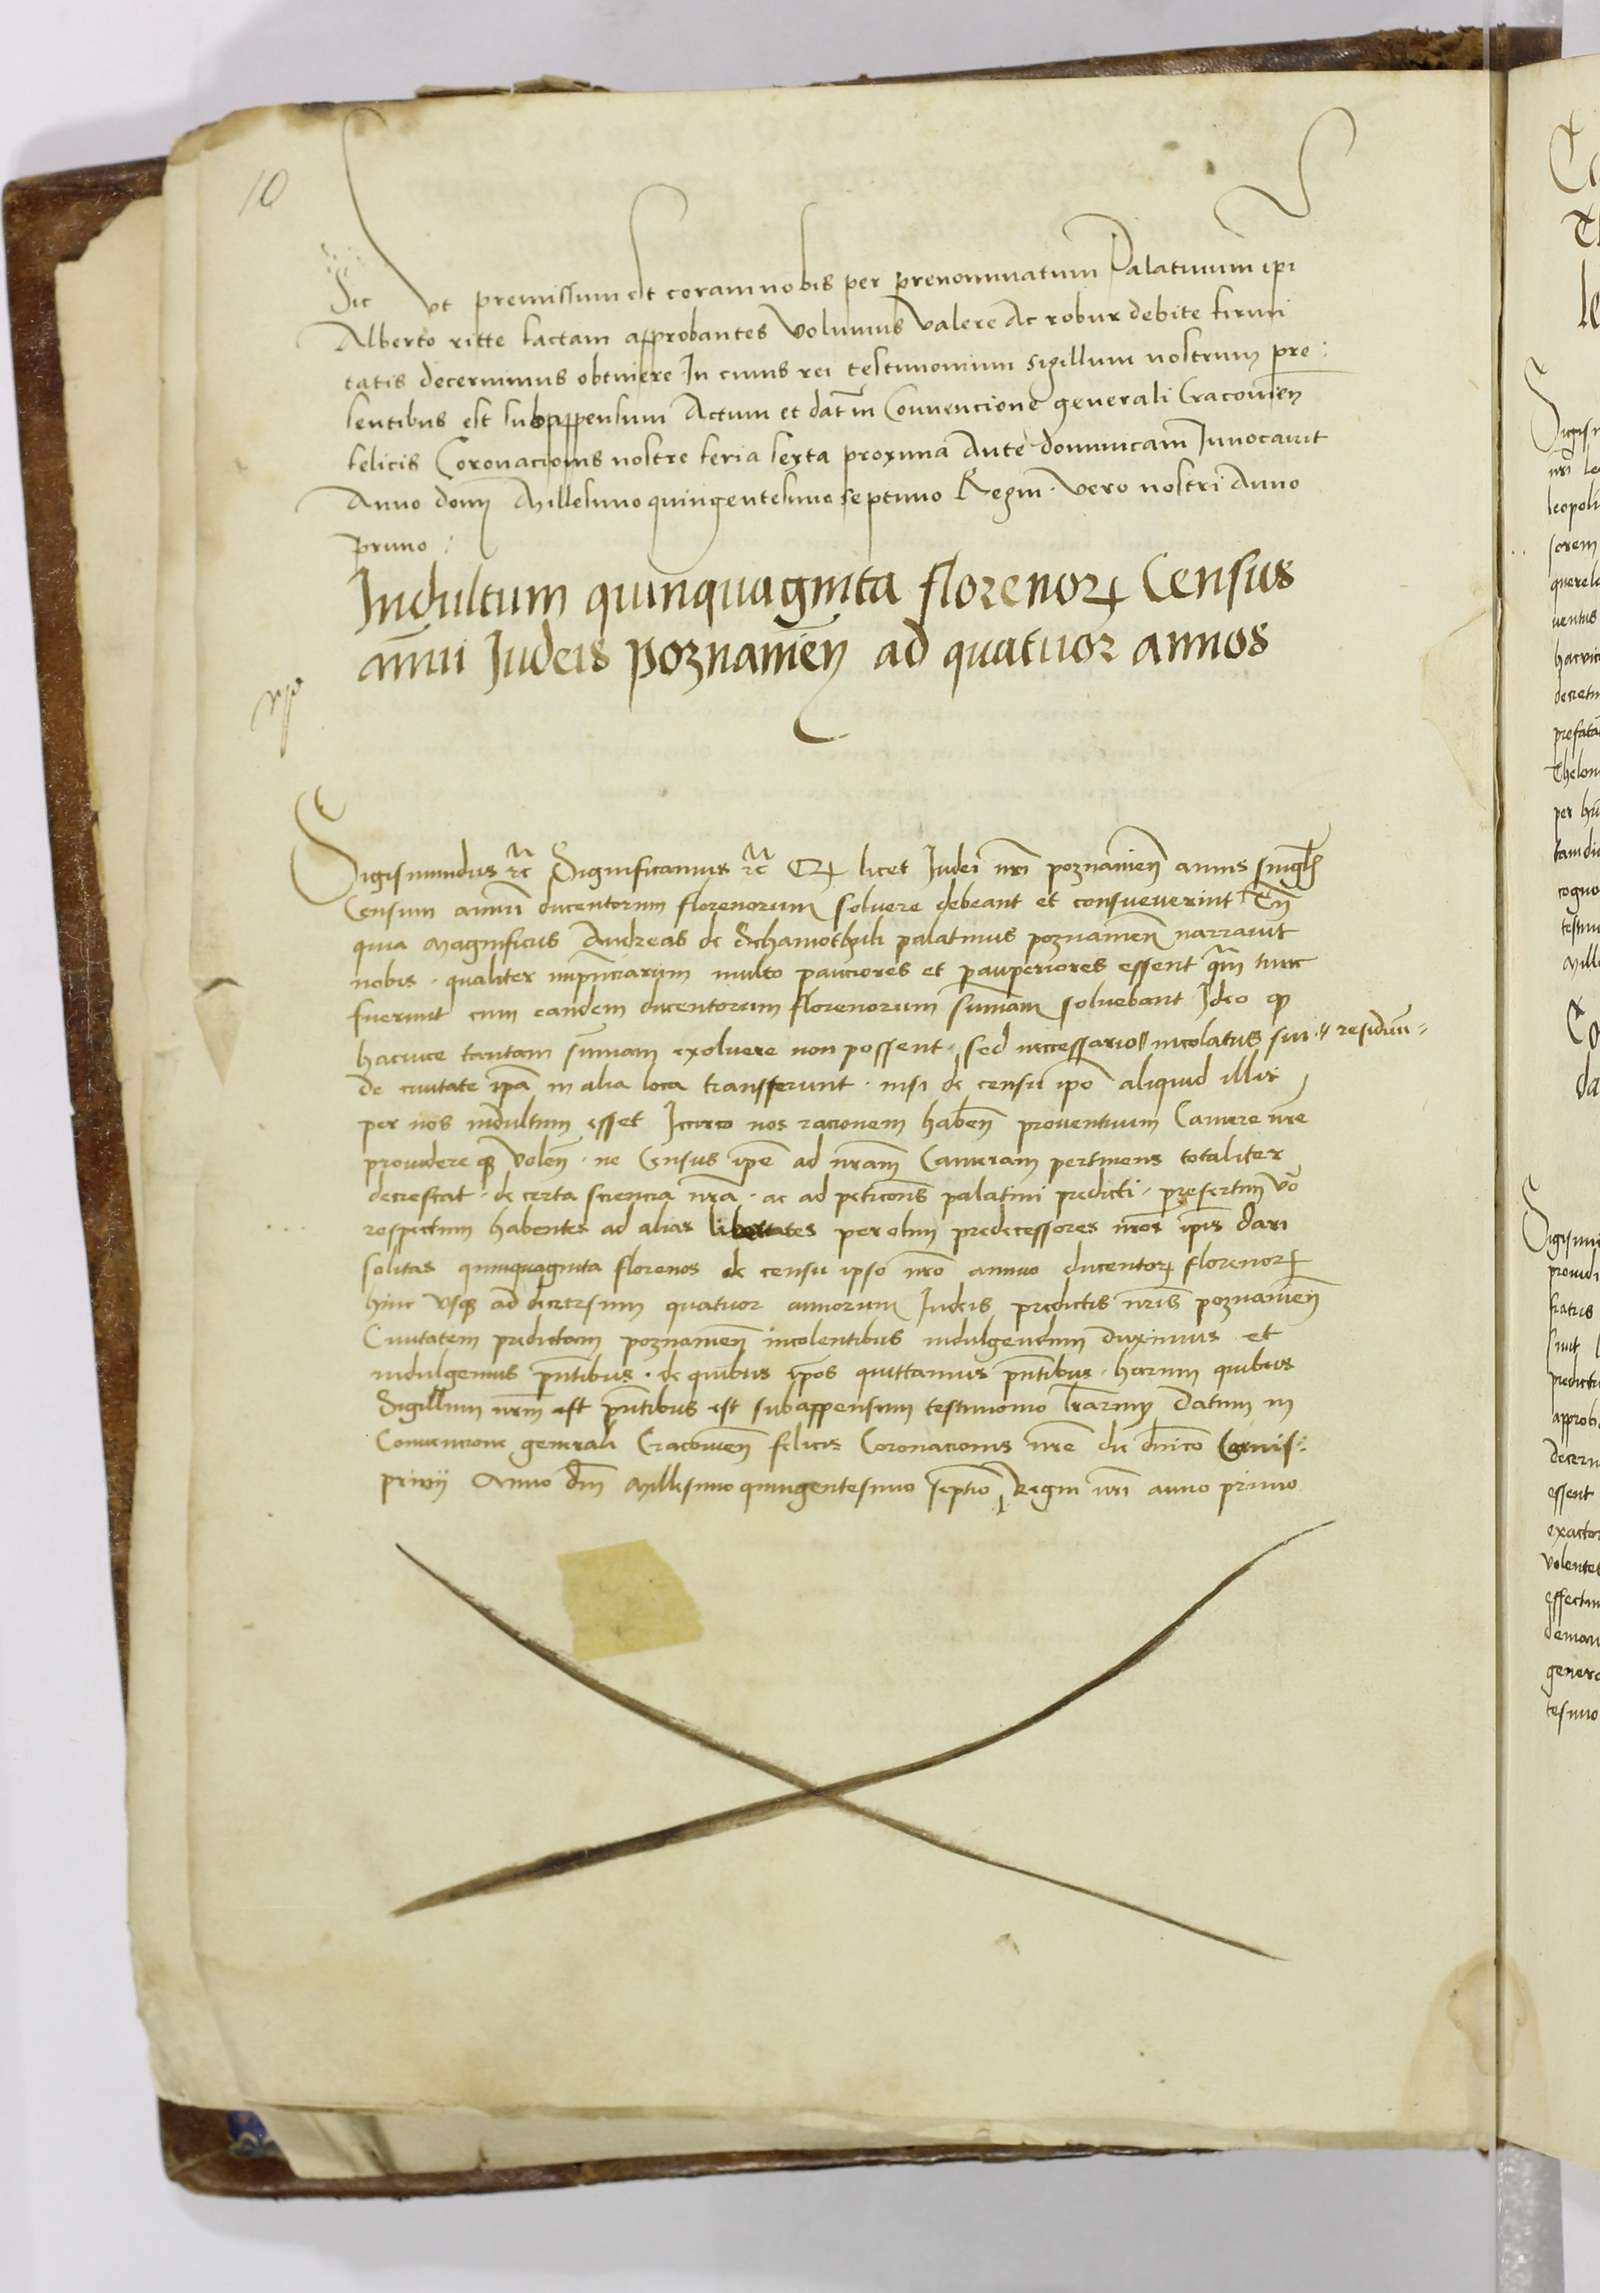 10
Sic Vt premissum est coram nobis per prenominatum Palatinum ipi
Alberto ritte factam approbantes Volumus Valere Ac robur debite firmi
tatis decernimus obtinere In cuius rei testimonium sigillum nostrum pre:
sentibus est subappensum Actum et dat̄ in Convencione generali Cracovien̄
felicis Coronacionis nostre feria sexta proxima Ante dominicam Invocavit
Anno domȷ Millesimo quingentesimo septimo Regni vero nostri Anno
primo :
Indultum quinquaginta florenorꝝ Census
annui Iudeis poznanien̄ ad quatuor annos
Sigismundus ꝛc̄ Significamus ꝛc̄ Qꝝ licet Iudei nr̄i poznanien̄ annis singl̄is
Censum annuū ducentorum florenorum solvere debeant et consueverint Tn̄
quia Magnificus Andreas de Schamothuli palatinus poznanien̄ narravit
nobis . qualiter inpnciarum multo pauciores et pauperiores essent qm̄ tunc
fuerunt cum eandem ducentorum florenorum sum̄am solvebant Ideo qꝫ
hac vice tantam sum̄am exolvere non possent . sed necessario // incolatus sui // residuū //
de civitate ip̄a in alia loca transferunt . nisi de censu ip̄o aliquid illis
per nos indultum esset Iccirco nos racionem haben̄ proventuum Camere nr̄e
providere qꝫ Volen̄ . ne Census ip̄e ad nr̄am Cameram pertinens totaliter
decrescat . de certa sciencia nr̄a . ac ad peticion̄s palatini predicti . presertim vō
respectum habentes ad alias libertates per olim predecessores nr̄os ip̄is dari
solitas quinquaginta florenos de censu ipso nr̄o annuo ducentorꝝ florenorꝝ
hinc vsqꝫ ad decursum quatuor annorum Iudeis predictis nr̄is poznanien̄
Civitatem predictam poznanien̄ incolentibus indulgendum duximus et
indulgemus pn̄tibus . de quibus ip̄os quittamus pn̄tibus . harum quibus
Sigillum nr̄m est pn̄tibus est subappensum testimonio l̄rarum Datum in
Convencione generali Cracovien̄ felicis Coronacionis nr̄e die dn̄ico Carnis:
privij Anno dn̄i Millesimo quingentesimo septi͞o Regni nr̄i anno primo